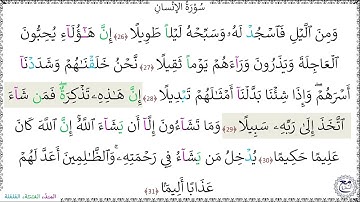 سُورَةُ الإِنسَانِ
وَمِنَ ٱلَّيْلِ فَٱسْجُدْ لَهُۥ وَسَبِّحْهُ لَيْلًا طَوِيلًا ﴿26﴾ إِنَّ هَٰٓؤُلَآءِ يُحِبُّونَ
ٱلْعَاجِلَةَ وَيَذَرُونَ وَرَآءَهُمْ يَوْمًا ثَقِيلًا ﴿27﴾ نَّحْنُ خَلَقْنَٰهُمْ وَشَدَدْنَآ
أَسْرَهُمْ ۖ وَإِذَا شِئْنَا بَدَّلْنَآ أَمْثَٰلَهُمْ تَبْدِيلًا ﴿28﴾ إِنَّ هَٰذِهِۦ تَذْكِرَةٌ ۖ فَمَن شَآءَ
ٱتَّخَذَ إِلَىٰ رَبِّهِۦ سَبِيلًا ﴿29﴾ وَمَا تَشَآءُونَ إِلَّآ أَن يَشَآءَ ٱللَّهُ ۚ إِنَّ ٱللَّهَ كَانَ
عَلِيمًا حَكِيمًا ﴿30﴾ يُدْخِلُ مَن يَشَآءُ فِى رَحْمَتِهِۦ ۚ وَٱلظَّٰلِمِينَ أَعَدَّ لَهُمْ
عَذَابًا أَلِيمًۢا ﴿31﴾
المدّ، الغنّة، القلقلة